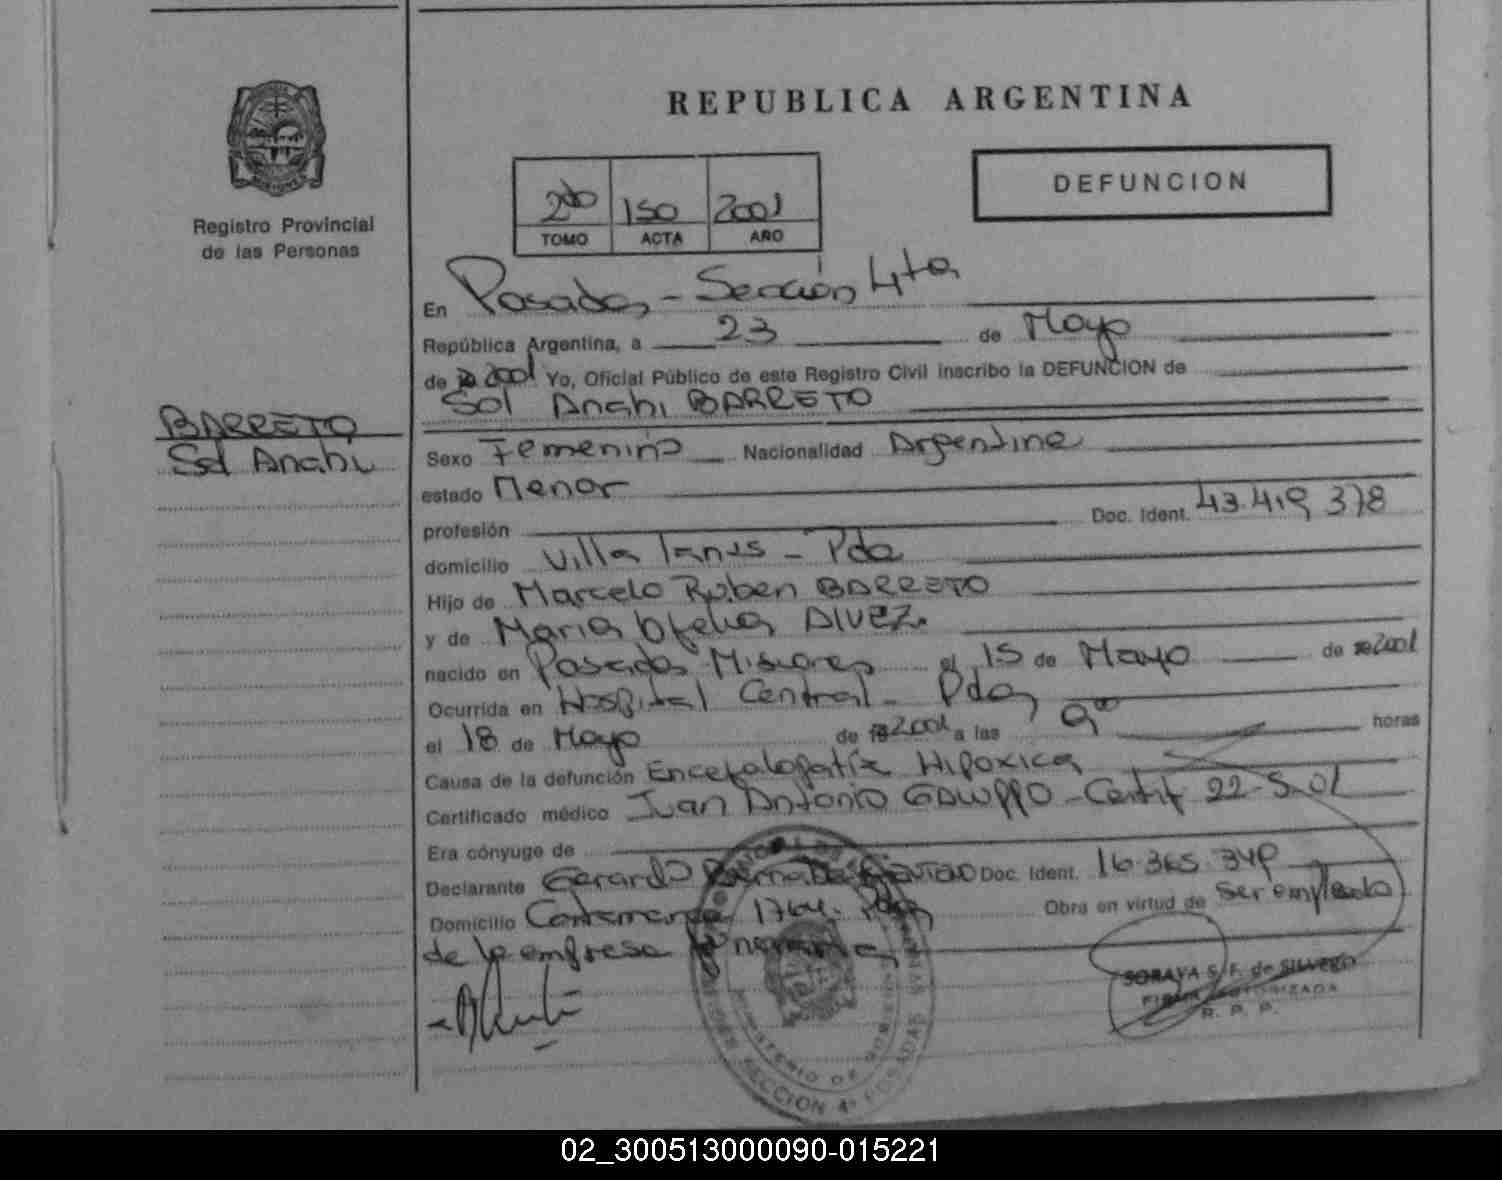 REPUBLICA ARGENTINA
Registro Provincial
de las Personas
2do 150 2001
TOMO ACTA AÑO
DEFUNCION
En Posadas - Sección 4ta
República Argentina, a 23 de Mayo
de 2001 Yo, Oficial Público de este Registro Civil inscribo la DEFUNCION de
Sol Anahi BARRETO
BARRETO
Sol Anahi
Sexo Femenino Nacionalidad Argentina
estado Menor
profesión Doc. Ident. 43.419.378
domicilio Villa Lanus - Pdas
Hijo de Marcelo Ruben BARRETO
y de Maria Ofelia ALVEZ.
nacido en Posadas Misiones el 15 de Mayo de 2001
Ocurrida en Hospital Central - Pdas
el 18 de Mayo de 2001 a las 9 horas
Causa de la defunción Encefalopatía Hipoxica
Certificado médico Juan Antonio GALUPPO - Certif 22-5-01
Era cónyuge de
Declarante Gerardo Doc. Ident. 16.365.349
Domicilio Catamarca 1764. Pdas Obra en virtud de ser empleado
de la empresa funeraria
SORAYA S. F. de SILVERO
FIRMA AUTORIZADA
R. P. P.
MINISTERIO DE GOBIERNO
SECCION 4ª POSADAS
02_300513000090-015221